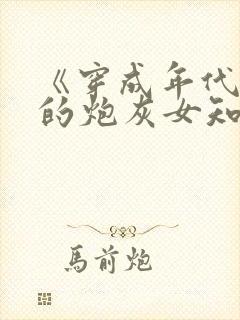 《穿成年代
的炮灰女知
馬前炮